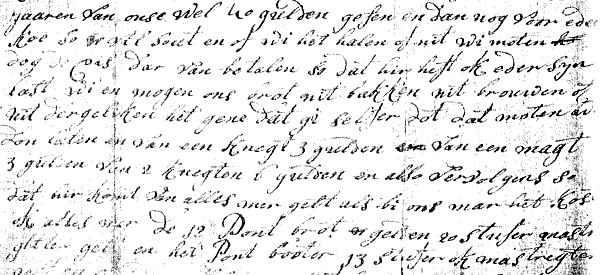 jaaren van onse wel 40 gulden gesen en dan nog voor eder
koe so vel sout en of wi het halen of nit wi moten
dog de vis dar van betalen so dat hir heft ok eder syn
last wi en mogen ons brot nit bakken nit brouwen of
nit dergeliken het gene dat gi selfer dot dat moten wi
don laten en van een knegt 3 gulden van een magt
3 gulden van 2 knegten 6 gulden en also vervolgens so
dat hir komt van alles mer gelt als bi ons mar het kos
ok alles mer de 12 Pont brot gelden 20 stufer mastri
gter gelt en het Pont booter 13 stufer ok mastregter